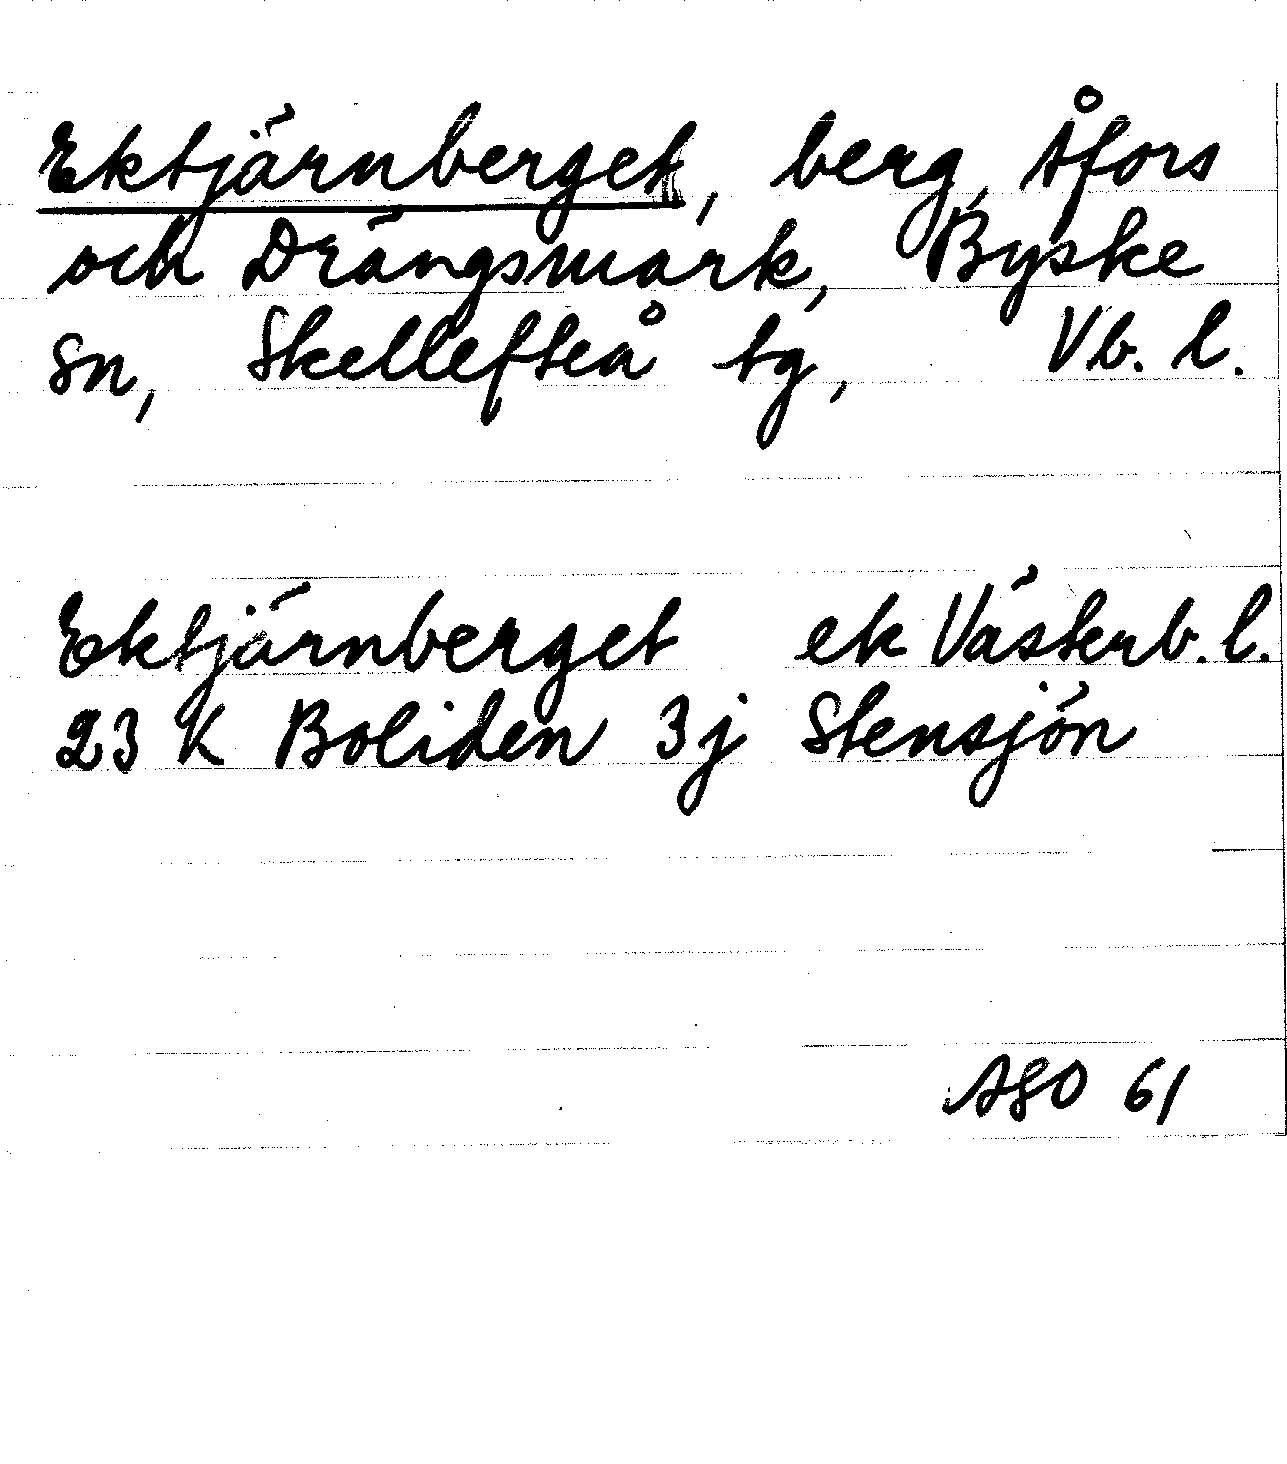 Ektjärnberget, berg, Åfors
och Drängsmark, Byske
sn, Skellefteå tg, Vb. l.
Ektjärnberget ek Västerb. l.
23 K Boliden 3j Stensjön
ASO 61